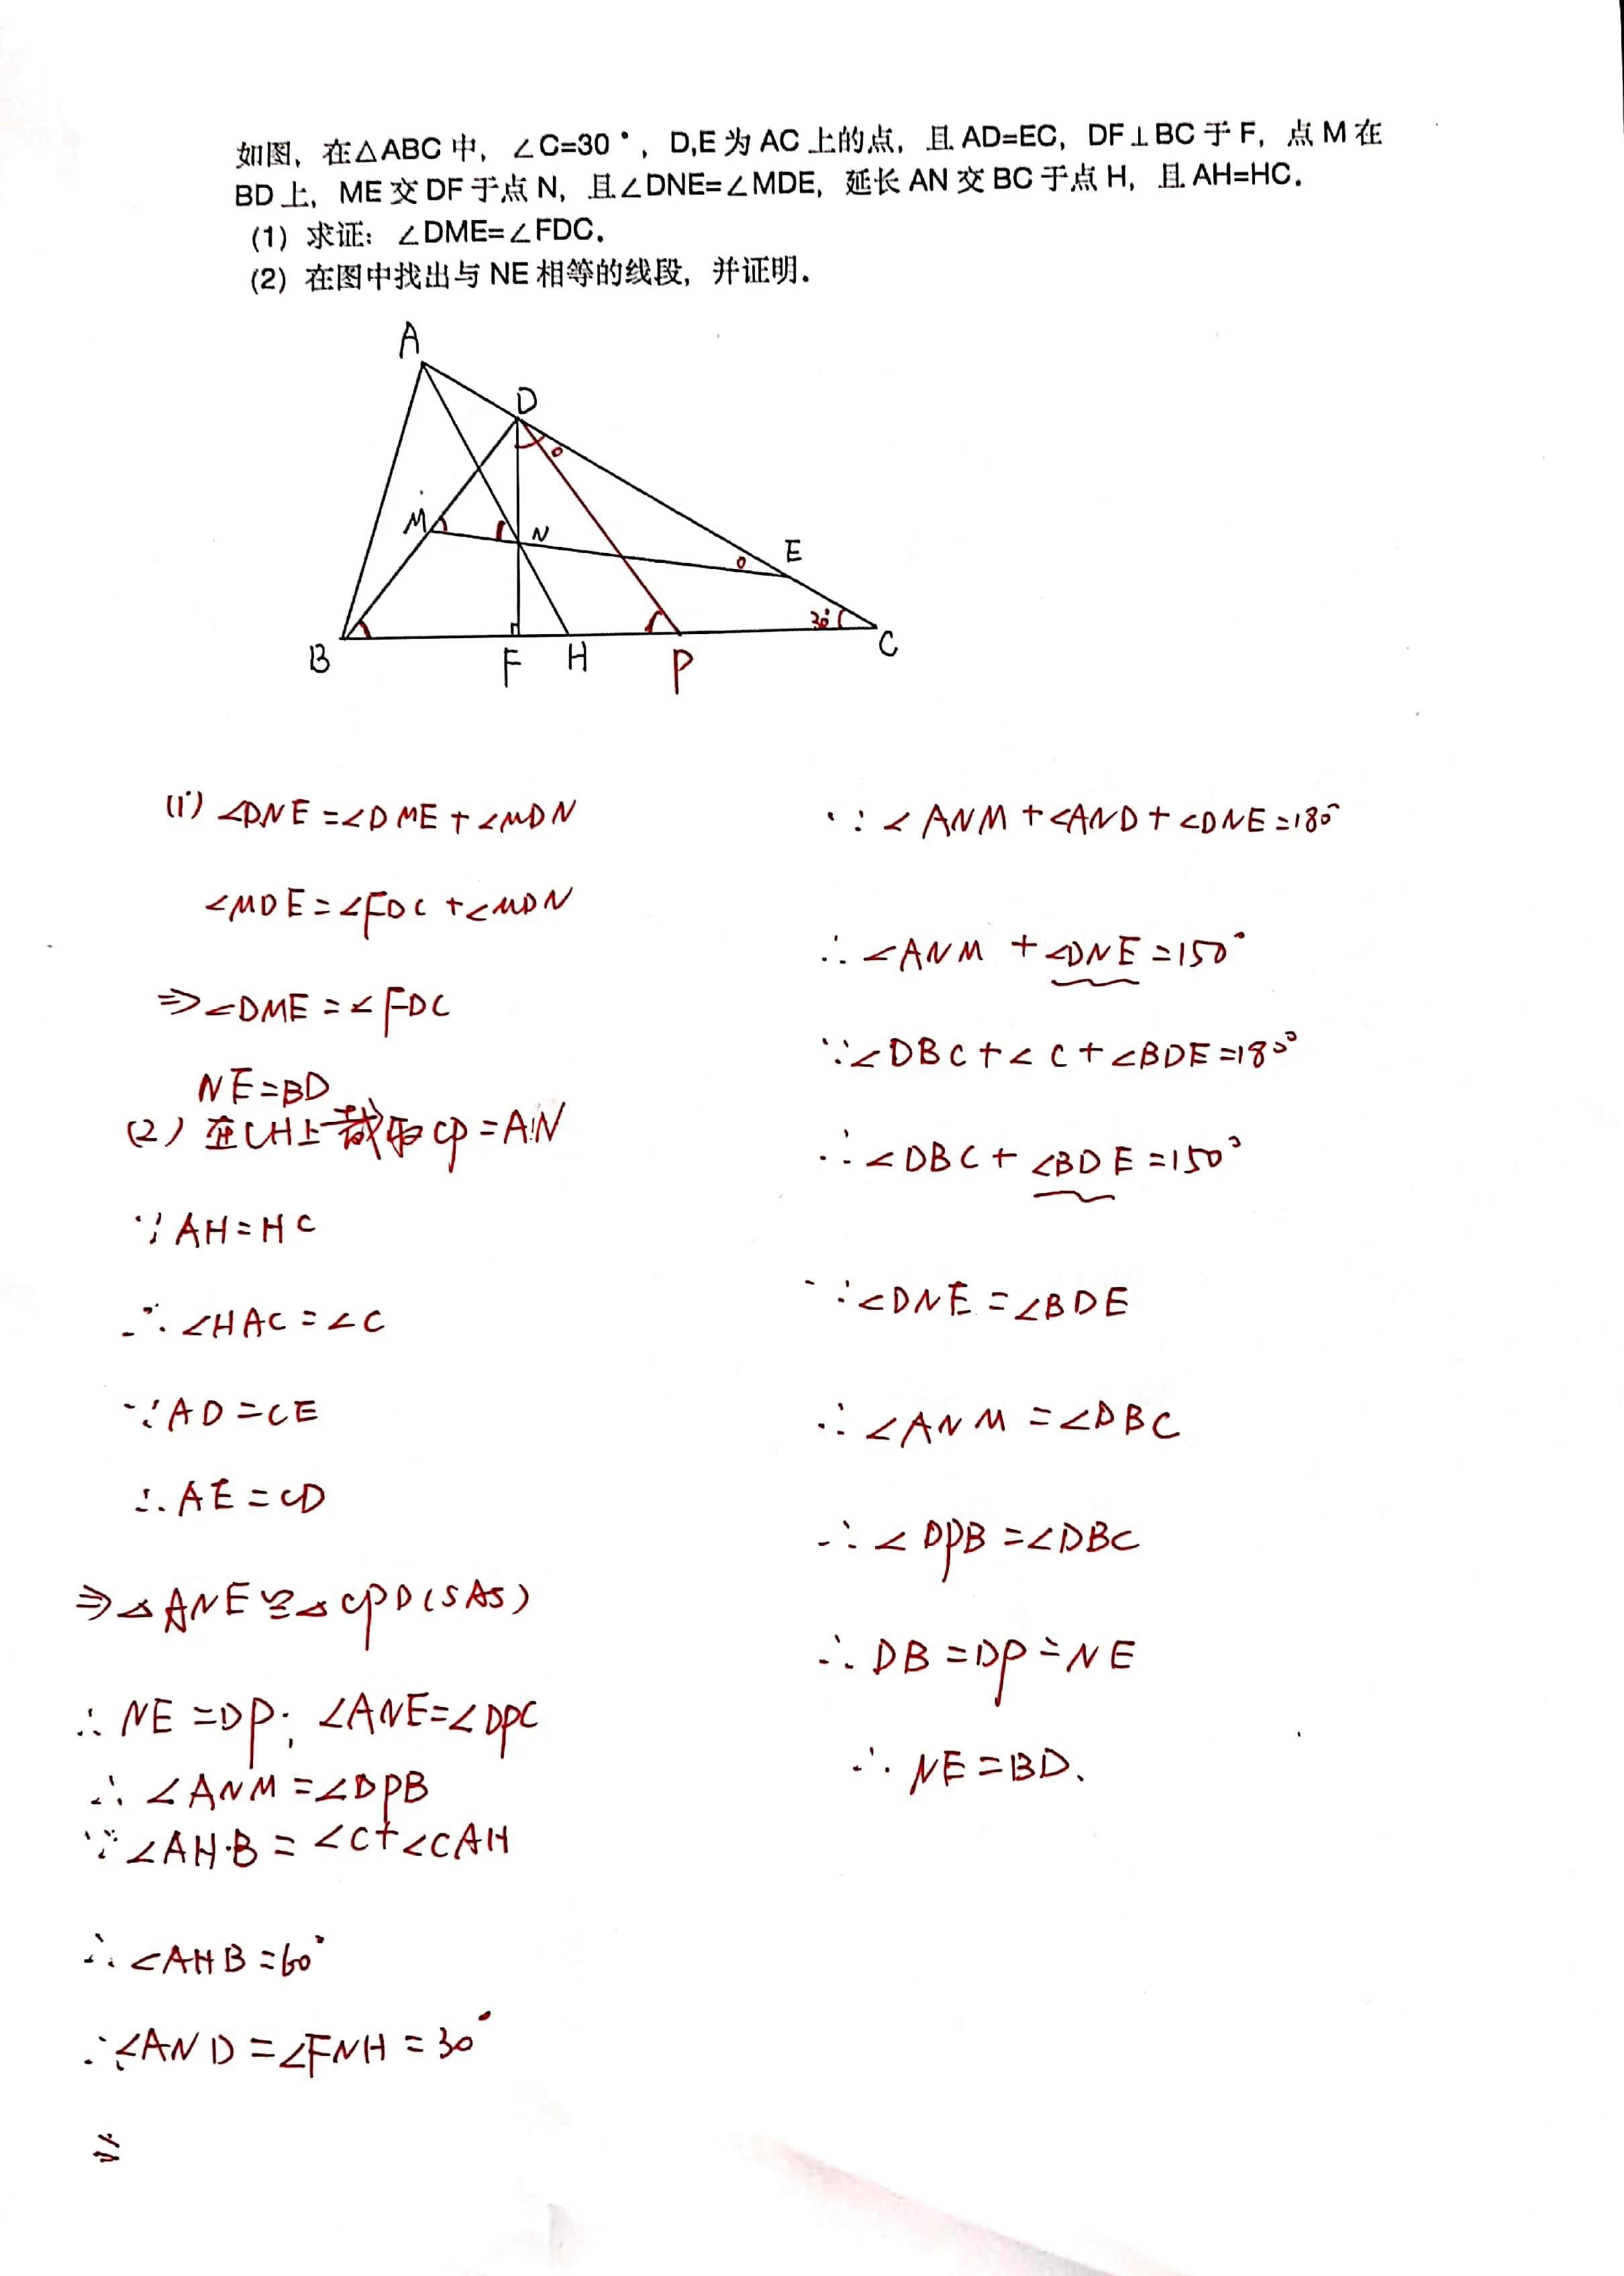 如图，在△ABC 中，∠C=30°，D,E 为 AC 上的点，且 AD=EC，DF⊥BC 于 F，点 M 在
BD 上，ME 交 DF 于点 N，且∠DNE=∠MDE，延长 AN 交 BC 于点 H，且 AH=HC.
(1) 求证：∠DME=∠FDC.
(2) 在图中找出与 NE 相等的线段，并证明.
A
D
M
N
E
30°
B
F
H
P
C
(1) ∠DNE=∠DME+∠MDN
∠MDE=∠FDC+∠MDN
⇒∠DME=∠FDC
NE=BD
(2) 在CH上截取CP=AN
∵AH=HC
∴∠HAC=∠C
∵AD=CE
∴AE=CD
⇒△ANE≌△CPD(SAS)
∴NE=DP; ∠ANE=∠DPC
∴∠ANM=∠DPB
∵∠AHB=∠C+∠CAH
∴∠AHB=60°
∴∠AND=∠FNH=30°
∵∠ANM+∠AND+∠DNE=180°
∴∠ANM+∠DNE=150°
∵∠DBC+∠C+∠BDE=180°
∴∠DBC+∠BDE=150°
∵∠DNE=∠BDE
∴∠ANM=∠DBC
∴∠DPB=∠DBC
∴DB=DP=NE
∴NE=BD.